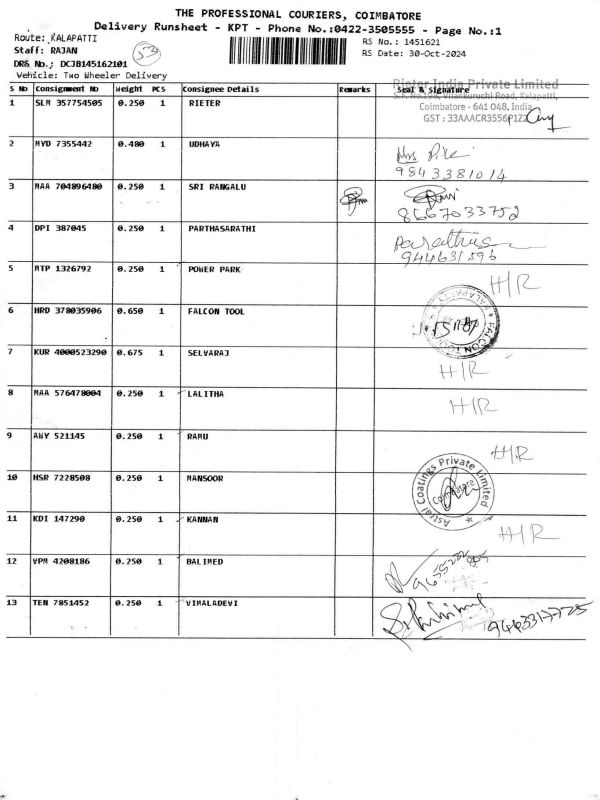 THE PROFESSIONAL COURIERS, COIMBATORE
Delivery Runsheet - KPT - Phone No.:0422-3505555 - Page No.:1
Route: KALAPATTI
RS No. : 1451621
Staff: RAJAN
53
RS Date: 30-Oct-2024
DRS No.: DCJB145162101
Vehicle: Two Wheeler Delivery
S No Consignment No Weight PCS Consignee Details Remarks Seal & Signature
Rieter India Private Limited
Coimbatore - 641 048, India
GST : 33AAACR3556P1ZZ
1 SLM 357754505 0.250 1 RIETER
2 MYD 7355442 0.480 1 UDHAYA
9843381014
3 MAA 704896480 0.250 1 SRI RANGALU
8667033752
4 DPI 387045 0.250 1 PARTHASARATHI
944631596
5 MTP 1326792 0.250 1 POWER PARK
H/R
6 HRD 378035906 0.650 1 FALCON TOOL
FALCON TOOL
KALAPATTI
7 KUR 4000523290 0.675 1 SELVARAJ
H/R
8 MAA 576478004 0.250 1 LALITHA
H/R
9 AWY 521145 0.250 1 RAMU
H/R
10 HSR 7228508 0.250 1 MANSOOR
Astral Coatings Private Limited
Coimbatore
11 KDI 147290 0.250 1 KANNAN
H/R
12 VPM 4208186 0.250 1 BALIMED
13 TEN 7851452 0.250 1 VIMALADEVI